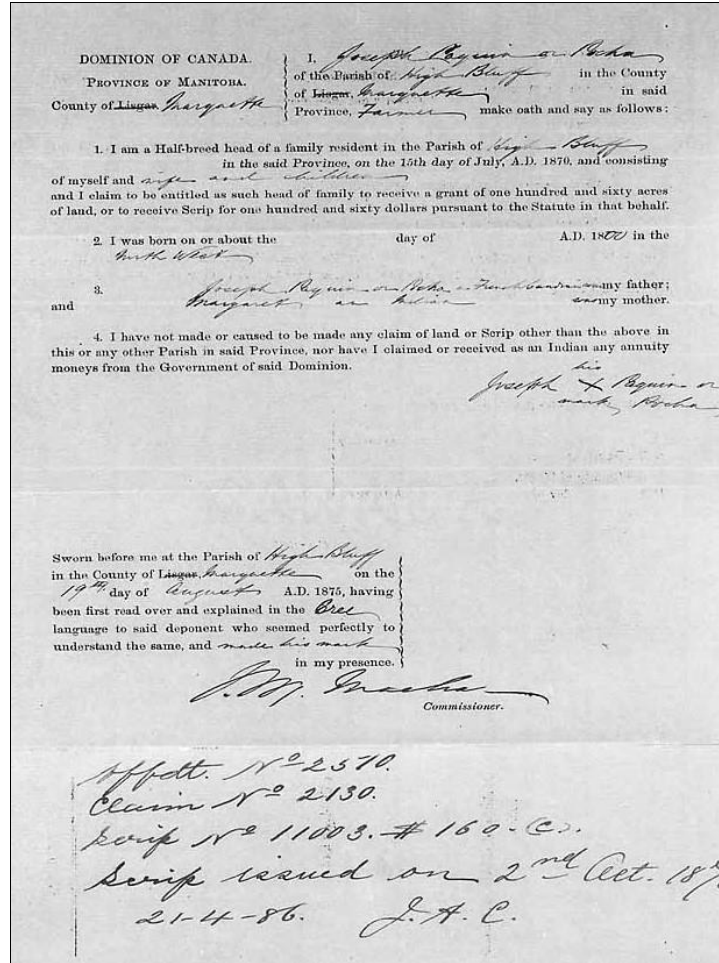 DOMINION OF CANADA.
PROVINCE OF MANITOBA.
County of Lisgar, Marquette
I, Joseph Pequin or Rocha
of the Parish of High Bluff in the County
of Lisgar, Marquette in said
Province, Farmer make oath and say as follows:
1. I am a Half-breed head of a family resident in the Parish of High Bluff
in the said Province, on the 15th day of July, A.D. 1870, and consisting
of myself and wife and children
and I claim to be entitled as such head of family to receive a grant of one hundred and sixty acres
of land, or to receive Scrip for one hundred and sixty dollars pursuant to the Statute in that behalf.
2. I was born on or about the day of A.D. 1800 in the
North West
3. Joseph Pequin or Rocha a French Canadian my father;
and Margaret an Indian my mother.
4. I have not made or caused to be made any claim of land or Scrip other than the above in
this or any other Parish in said Province, nor have I claimed or received as an Indian any annuity
moneys from the Government of said Dominion.
his
Joseph X Pequin or
mark Rocha
Sworn before me at the Parish of High Bluff
in the County of Lisgar, Marquette on the
19th day of August A.D. 1875, having
been first read over and explained in the Cree
language to said deponent who seemed perfectly to
understand the same, and made his mark
in my presence.
Commissioner.
Affdt. No 2570.
Claim No 2130.
Scrip No 11003. $160.(C).
Scrip issued on 2nd Oct. 18
21-4-86. J.A.C.